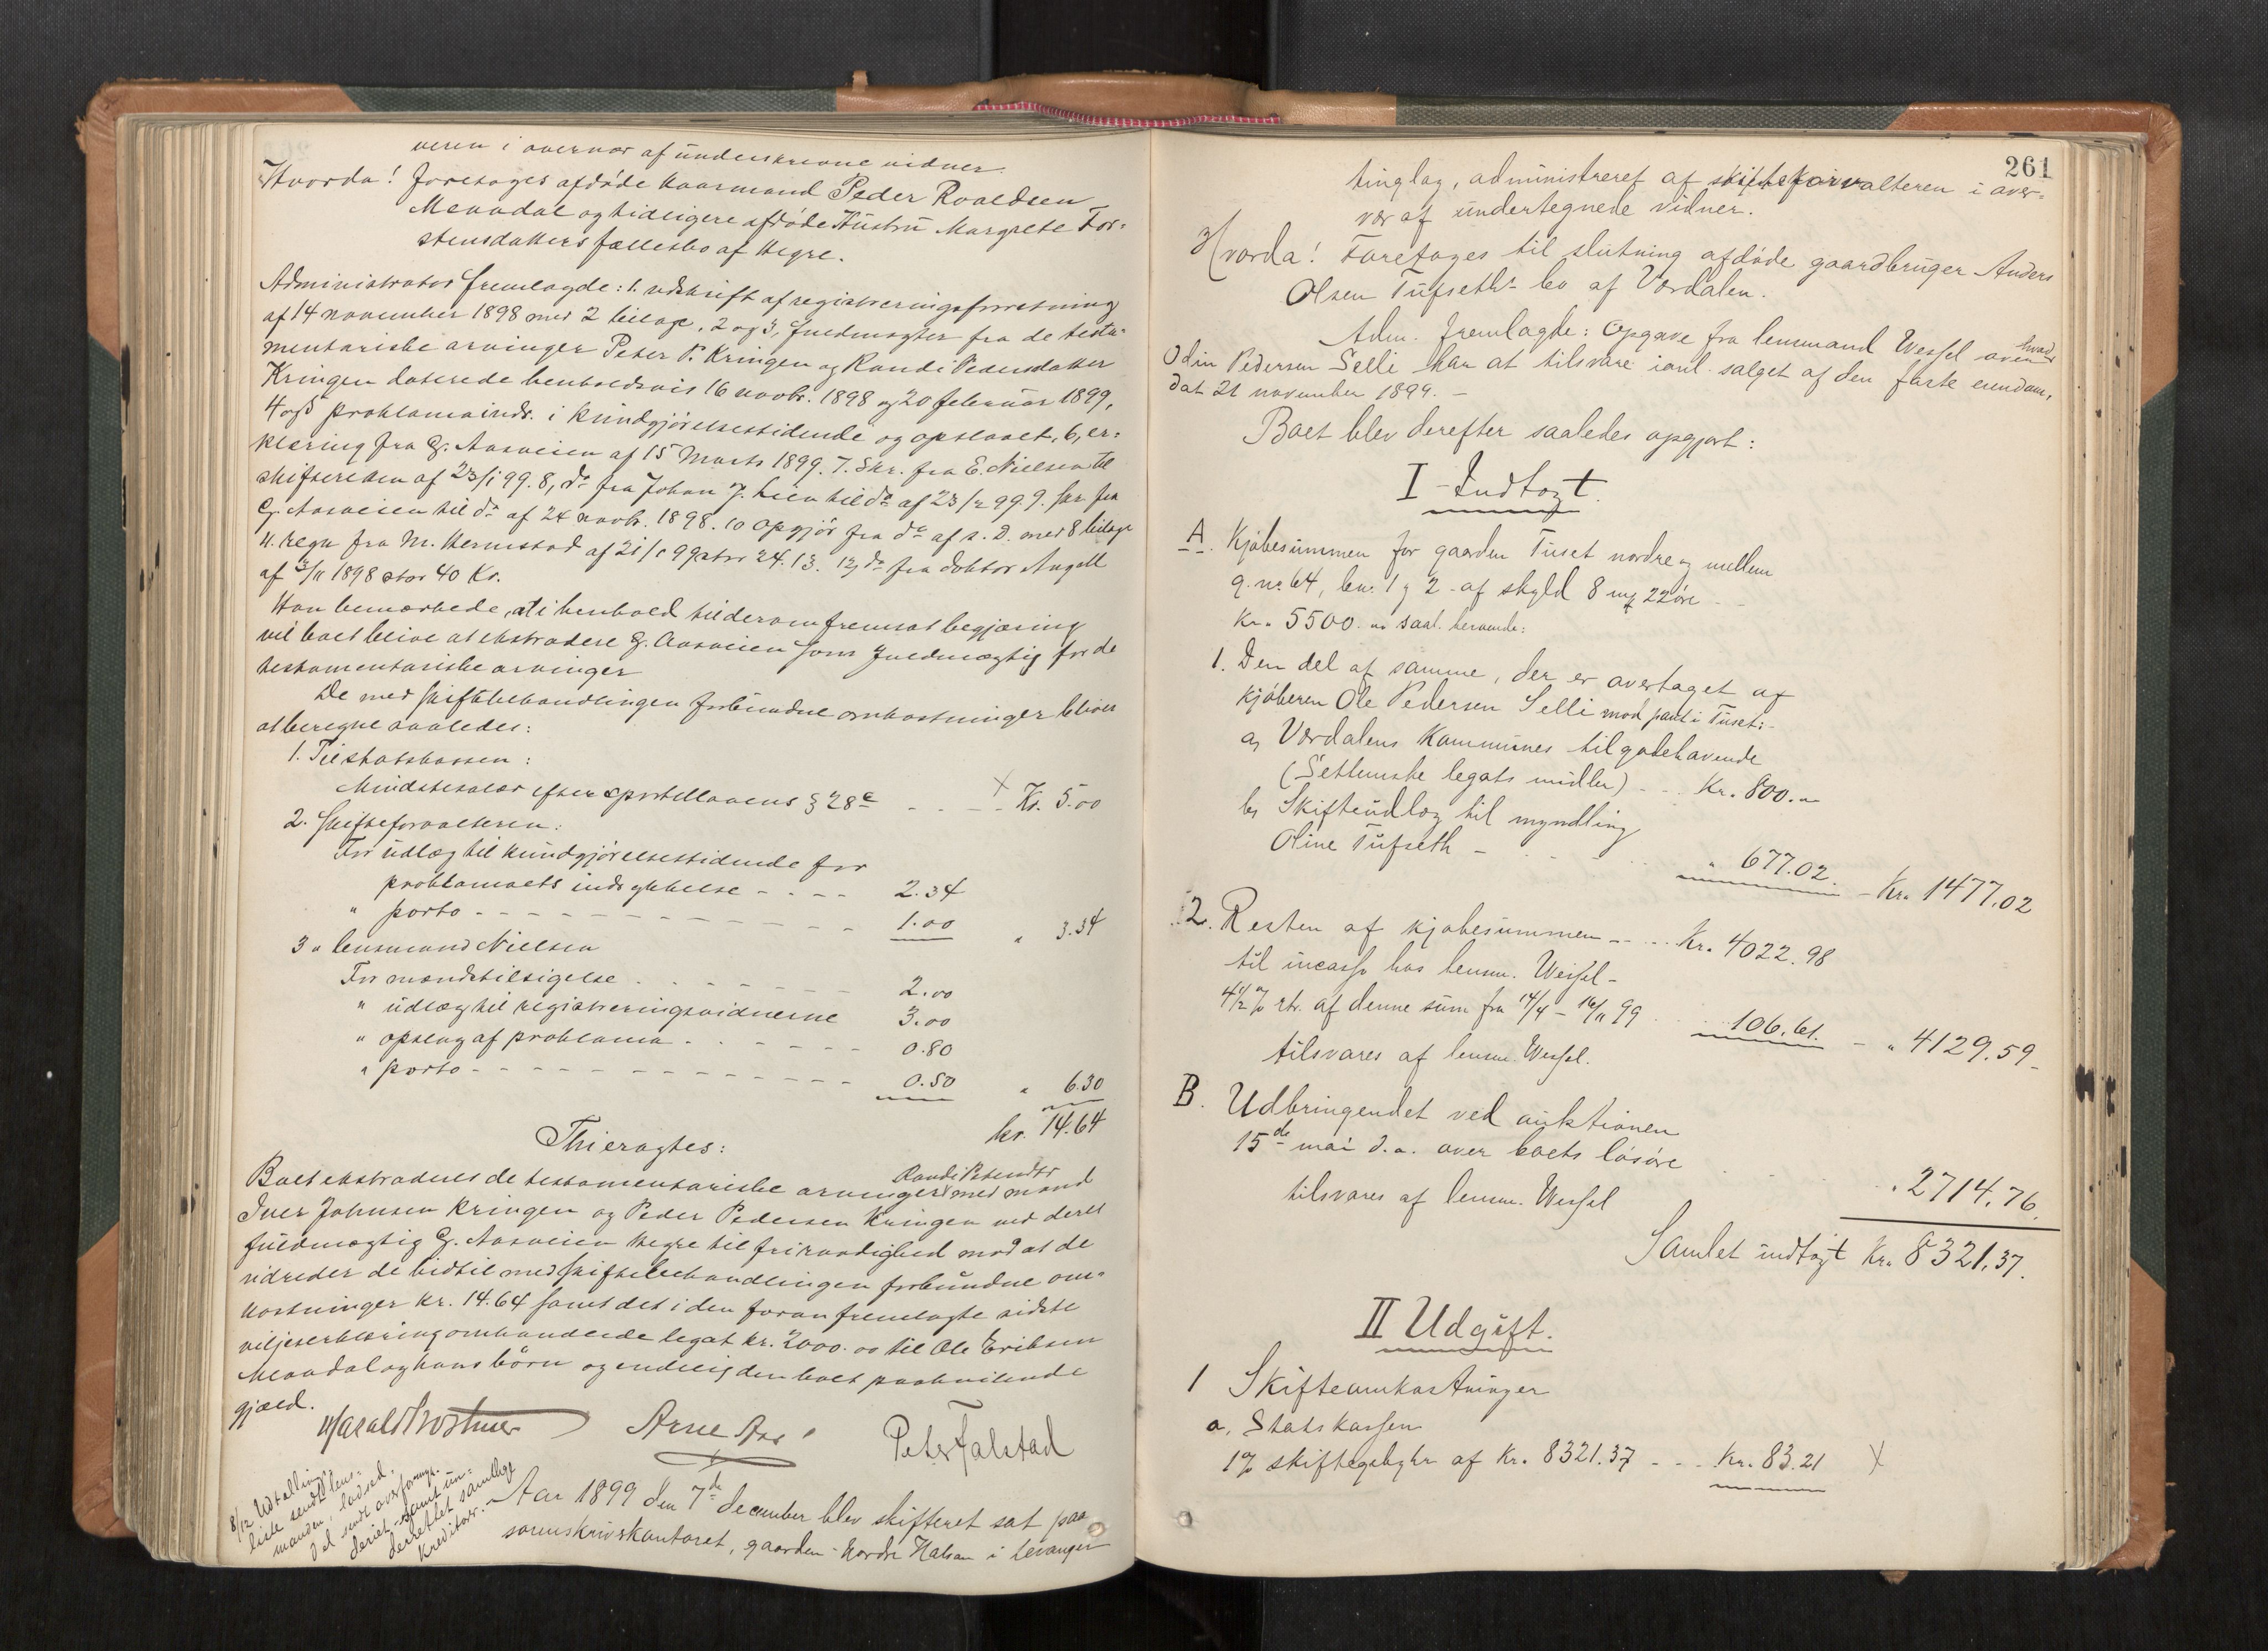 veren i overvær af underskrevne vidner.
Hvorda! foretoges afdöde kaarmand Peder Roaldsen
Meaadal og tidligere afdöde Hustru Margrete Tor-
stensdatters fællesbo af Hegre.
Administrator fremlagde: 1. udskrift af registreringsforretning
af 14 november 1898 med 2 bilage, 2 og 3, fuldmagter fra de testa-
mentariske arvinger Peter P. Kringen og Randi Pedersdatter
Kringen daterede henholdsvis 16 novbr. 1898 og 20 februar 1899,
4 og 5 proklamainds. i kundgjörelsestidende og opslaaet, 6, er-
klæring fra G. Aasveien af 15 Marts 1899. 7. Skr. fra E. Nielsen til
skifteretten af 23/1 99. 8, do fra Johan J. Lien til do af 23/2 99 9. skr fra
G. Aasveien til do af 24 novbr. 1898. 10 opgjör fra do af s. D. med 8 bilage
11. regn fra M. Hermstad af 21/1 99 stor 24.13. 12, do fra doktor Angell
af 3/11 1898 stor 40 Kr.
Han bemærkede, at i henhold til derom fremsat begjæring
vil boet blive at ekstradere G. Aasveien som fuldmægtig for de
testamentariske arvinger
De med skiftebehandlingen forbundne omkostninger bliver
at beregne saaledes:
1. Til statskassen:
Mindstesalær efter sportellovens § 28 c - - - Kr. 5.00
2. Skifteforvalteren:
For udlæg til kundgjörelsestidende for
proklamaets indrykkelse - - - - 2.34
" porto - - - - 1.00 " 3.34
3 " lensmand Nielsen
For mandstilsigelse - - - - 2.00
" udlæg til registreringsvidnerne 3.00
" opslag af proklama - - - - 0.80
" porto - - - - 0.50 " 6.30
kr. 14.64
Thi eragtes:
Boet ekstraderes de testamentariske arvinger Randi Pedersdtr med mand
Iver Johnsen Kringen og Peder Pedersen Kringen ved deres
fuldmægtig G. Aasveien Hegre til fri raadighed mod at de
udreder de hidtil med skiftebehandlingen forbundne om-
kostninger kr. 14.64 samt det i den foran fremlagte sidste
viljeserklæring omhandlede legat kr. 2000.00 til Ole Eriksen
Meaadal og hans börn og endelig den boet paahvilende
gjæld.
Harald Bostner Arne Aas Peter Falstad
8/12 Udtellings-
liste sendt lens-
manden, lodsed-
del sendt overformyn-
deriet samt un-
derrettet samtlige
kreditorer.
Aar 1899 den 7de december blev skifteret sat paa
sorenskriverkontoret, gaarden Nordre Halsan i Levanger
261
tinglag, administreret af skifteforvalteren i over-
vær af undertegnede vidner.
Hvorda! Foretoges til slutning afdöde gaardbruger Anders
Olsen Tufseths bo af Værdalen.
Adm. fremlagde: Opgave fra lensmand Wessel over hvad
Odin Pedersen Selli har at tilsvare ianl. salget af den faste eiendom,
dat 21 november 1899. -
Boet blev derefter saaledes opgjort:
I Indtægt.
A. Kjöbesummen for gaarden Tuset nordre og mellem
g. no 64, bn. 1 og 2 - af skyld 8 mk 22 öre - -
Kr. 5500.00 saal. beroende:
1. Den del af samme, der er overtaget af
kjöberen Ole Pedersen Selli mod pant i Tuset:-
a, Værdalens Kommunes tilgodehavende
(Setlemske legats midler) - - - Kr. 800.00
b, Skifteudlæg til myndling
Oline Tufseth - - - - " 677.02. - Kr. 1477.02
2. Resten af kjöbesummen - - - Kr. 4022.98
til incasso hos lensm. Wessel -
4 1/2 % rtr. af denne sum fra 14/4 - 16/11 99 - - 106.61. - " 4129.59 -
tilsvares af lensm. Wessel.
B. Udbringendet ved auktionen
15de mai d.a. over boets lösöre
tilsvares af lensm. Wessel - - " 2714.76.
Samlet indtægt Kr. 8321.37.
II Udgift.
1 Skifteomkostninger
a, Statskassen
1% skiftegebyhr af Kr. 8321.37 - - - Kr. 83.21